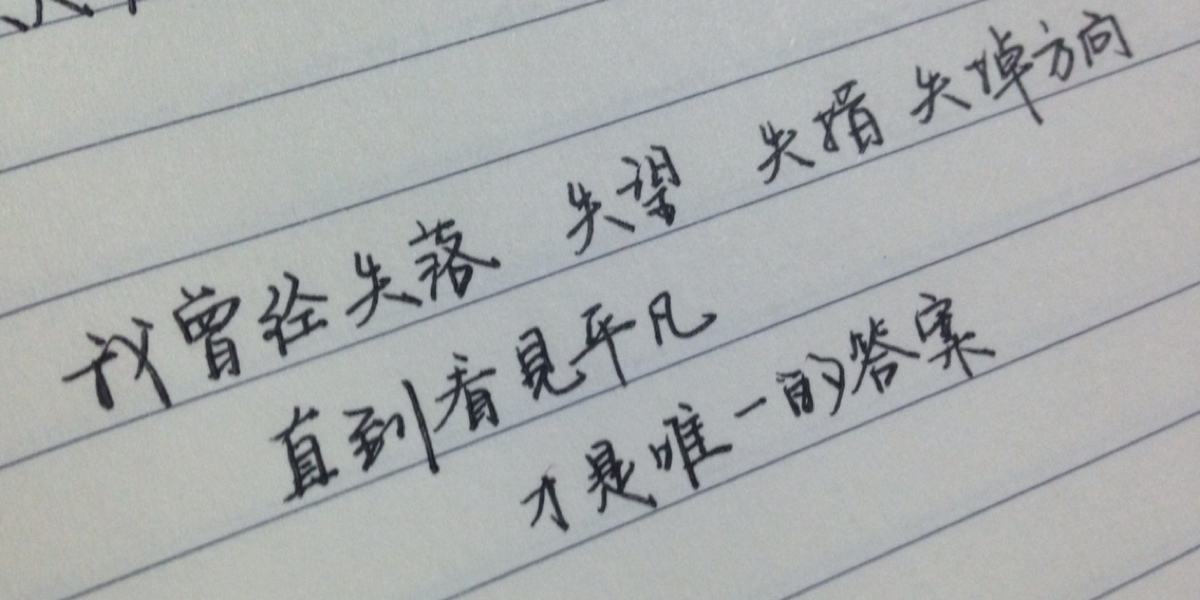 我曾经失落 失望 失 失掉方向
直到看見平凡
才是唯一的答案